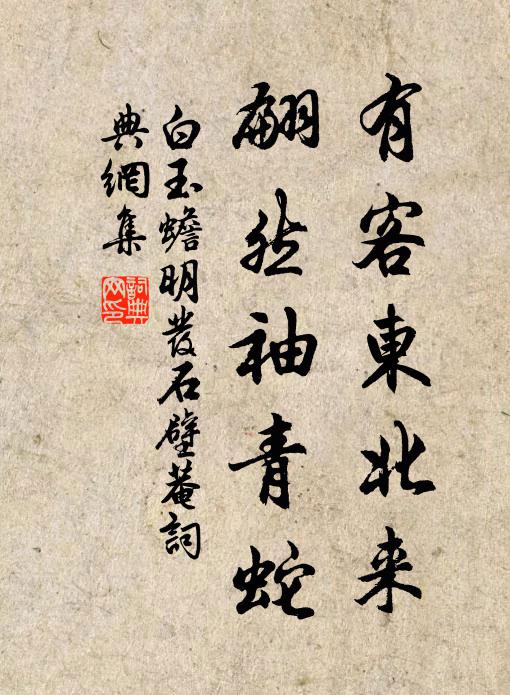 有客東北来
翩然袖青蛇
白玉蟾明發石壁菴詞
典網集
詞典
网印